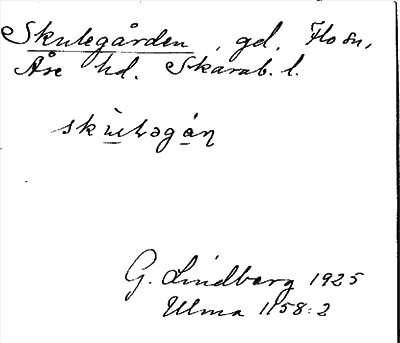 Skulegården, gd, Flo sn,
Åse hd. Skarab. l.
skùləgán
G. Lindberg 1925
Ulma 1158:2